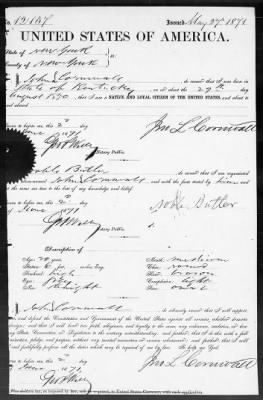 No. 12157 Issued May 27 1871
UNITED STATES OF AMERICA.
State of New York
County of New York
I John Cornwall do swear that I was born in
State of Kentucky on or about the 29th day
August 1850, that I am a NATIVE AND LOYAL CITIZEN OF THE UNITED STATES, and about to
Sworn before me this 2 day
of June 1871
Notary Public.
Jno L Cornwall
Noble Butler do swear that I am acquainted
with the above named John Cornwall and with the facts stated by him
and the same are true to the best of my knowledge and belief.
Sworn to before me this 2 day
of June 1871
Notary Public.
Noble Butler
Description of
Age: 20 years
Mouth: medium
Stature: 6 feet inches Eng.
Chin: round
Forehead: high
Hair: brown
Complexion: light
Nose: straight
Face:
I John Cornwall do solemnly swear that I will support,
protect, and defend the Constitution and Government of the United States against all enemies, whether domestic
or foreign; and that I will bear true faith, allegiance, and loyalty to the same, any ordinance, resolution, or law
of any State, Convention, or Legislature to the contrary notwithstanding; and further, that I do this with a full
determination, pledge, and purpose, without any mental reservation or evasion whatsoever; and further, that I will
well and faithfully perform all the duties which may be required of me by law. So help me God.
Sworn to before me this 2 day
of June 1871
Notary Public.
Jno L Cornwall